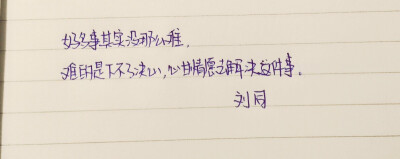 好多事其实没那么难，
难的是下不了决心，心甘情愿去解决这件事。
刘同